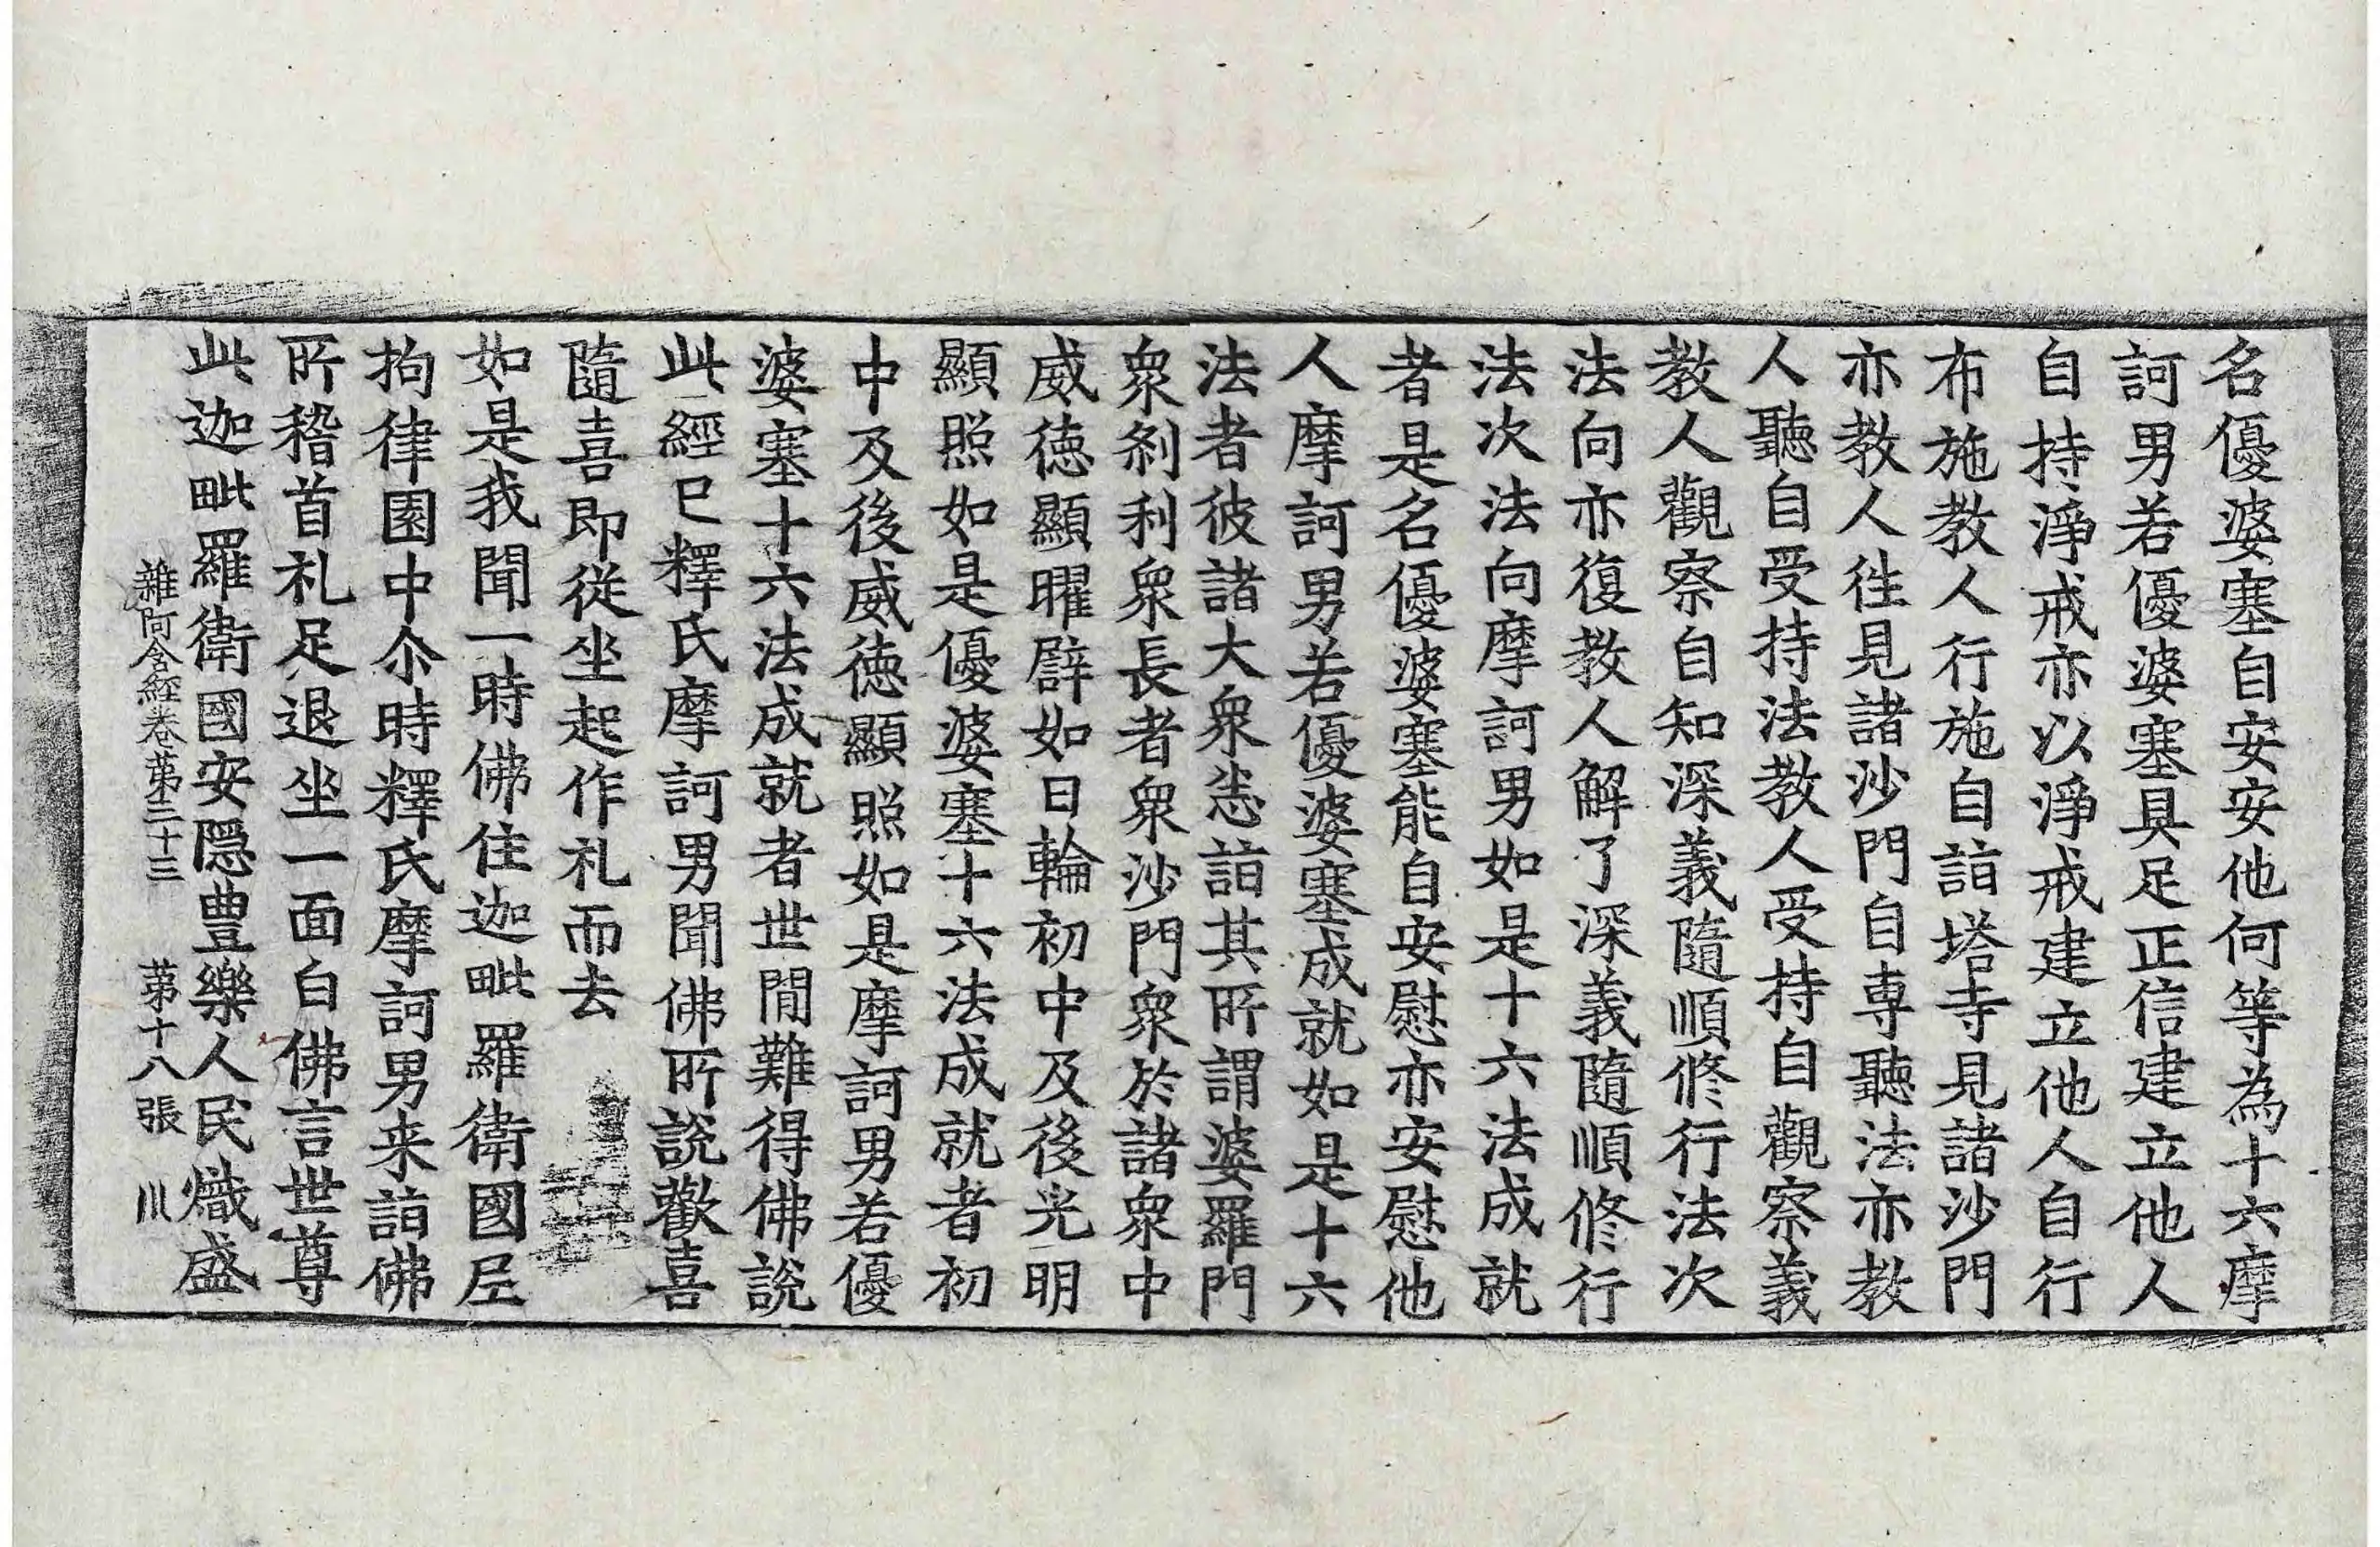 名優婆塞自安安他何等為十六摩
訶男若優婆塞具足正信建立他人
自持淨戒亦以淨戒建立他人自行
布施教人行施自詣塔寺見諸沙門
亦教人徃見諸沙門自専聽法亦教
人聽自受持法教人受持自觀察義
教人觀察自知深義隨順修行法次
法向亦復教人解了深義隨順修行
法次法向摩訶男如是十六法成就
者是名優婆塞能自安慰亦安慰他
人摩訶男若優婆塞成就如是十六
法者彼諸大衆悉詣其所謂婆羅門
衆刹利衆長者衆沙門衆於諸衆中
威徳顯曜譬如日輪初中及後光明
顯照如是優婆塞十六法成就者初
中及後威徳顯照如是摩訶男若優
婆塞十六法成就者世間難得佛說
此經已釋氏摩訶男聞佛所說歡喜
隨喜即從坐起作礼而去
如是我聞一時佛住迦毗羅衛國尼
拘律園中尒時釋氏摩訶男来詣佛
所稽首礼足退坐一面白佛言世尊
此迦毗羅衛國安隱豊樂人民熾盛
雜阿含経卷苐三十三　苐十八張　川